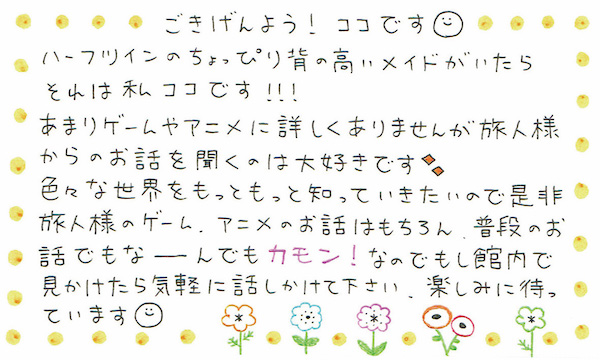 ごきげんよう！ココです
ハーフツインのちょっぴり背の高いメイドがいたら
それは私ココです!!!
あまりゲームやアニメに詳しくありませんが旅人様
からのお話を聞くのは大好きです
色々な世界をもっともっと知っていきたいので是非
旅人様のゲーム、アニメのお話はもちろん、普段のお
話でもな——んでもカモン！なのでもし館内で
見かけたら気軽に話しかけて下さい、楽しみに待っ
ています